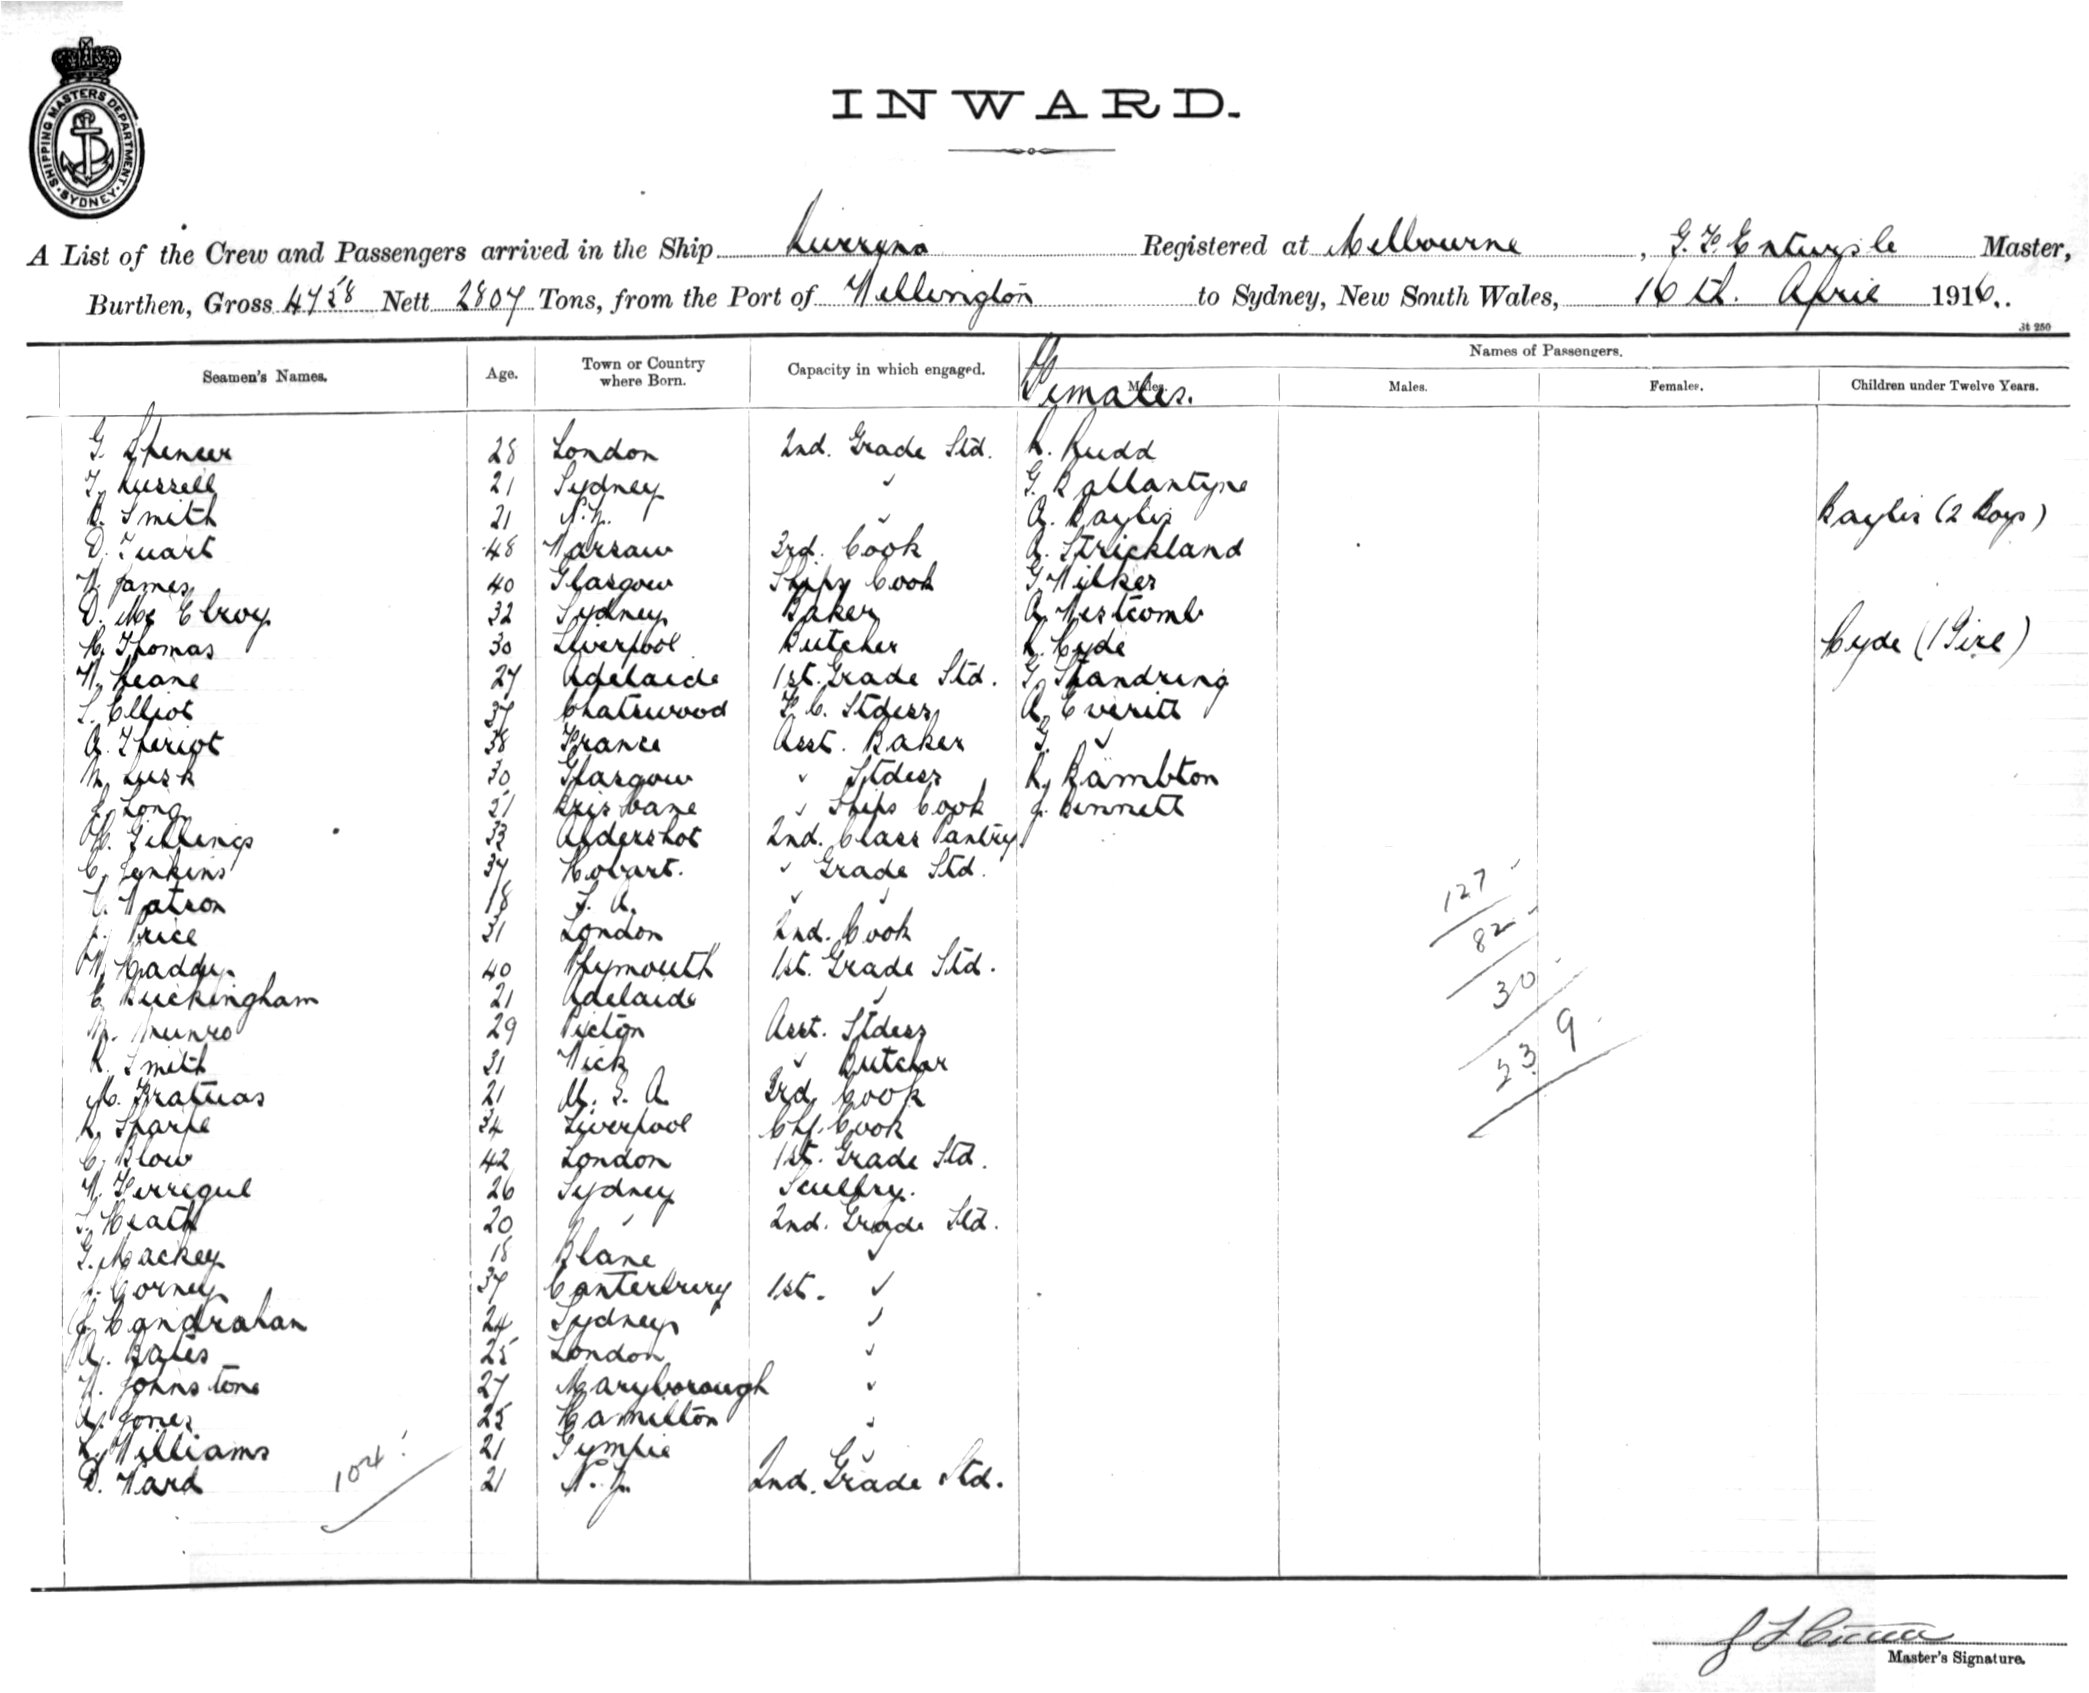 SHIPPING MASTERS DEPARTMENT · SYDNEY ·
INWARD.
A List of the Crew and Passengers arrived in the Ship Registered at Melbourne , G. F. Master,
Burthen, Gross 4758 Nett 2807 Tons, from the Port of Wellington to Sydney, New South Wales, 16th. April 1916.
Jt 250
Seamen's Names. Age. Town or Country where Born. Capacity in which engaged. Names of Passengers.
Males. Females. Males. Females. Children under Twelve Years.
G. Spencer 28 London 2nd. Grade Std. R. Rudd
T. Russell 21 Sydney " G. Ballantyne
B. Smith 21 N.Z. " A. Baylis Baylis (2 Boys)
D. Tuart 48 Warsaw 3rd. Cook A. Strickland
W. James 40 Glasgow Ships Cook G. Wilker
D. Mc Elroy 32 Sydney Baker A. Westcomb
H. Thomas 30 Liverpool Butcher Hyde (1 Girl)
W. Keane 27 Adelaide 1st. Grade Std. G. Standring
S. Elliot 37 Chatswood F. C. Stdess A. Everitt
A. Theriot 38 France Asst. Baker G. "
N. Lusk 30 Glasgow " Stdess Rambton
L. Long 21 Brisbane " Ships Cook J. Bennett
H. Gillings 33 Aldershot 2nd. Class Pantry
C. Jenkins 37 Hobart. " Grade Std.
Watson 18 S. A. " "
Price 31 London 2nd. Cook
W. Haddy 40 Plymouth 1st. Grade Std.
E. Buckingham 21 Adelaide "
M. Munro 29 Picton Asst. Stdess
R. Smith 31 Wick " Butcher
M. Fratuas 21 U. S. A 3rd. Cook
R. Sharpe 34 Liverpool Chf. Cook
C. Blow 42 London 1st. Grade Std.
W. 26 Sydney Scullry.
S. Heath 20 " 2nd. Grade Std.
G. Mackey 18 "
37 Canterbury 1st. "
J. Handrahan 24 Sydney "
A. Bates 25 London "
W. Johnstone 27 Maryborough "
A. Jones 25 Hamilton "
L. Williams 21 Gympie "
D. Ward 21 N. Z. 2nd. Grade Std.
104
127
82
30
239
Master's Signature.